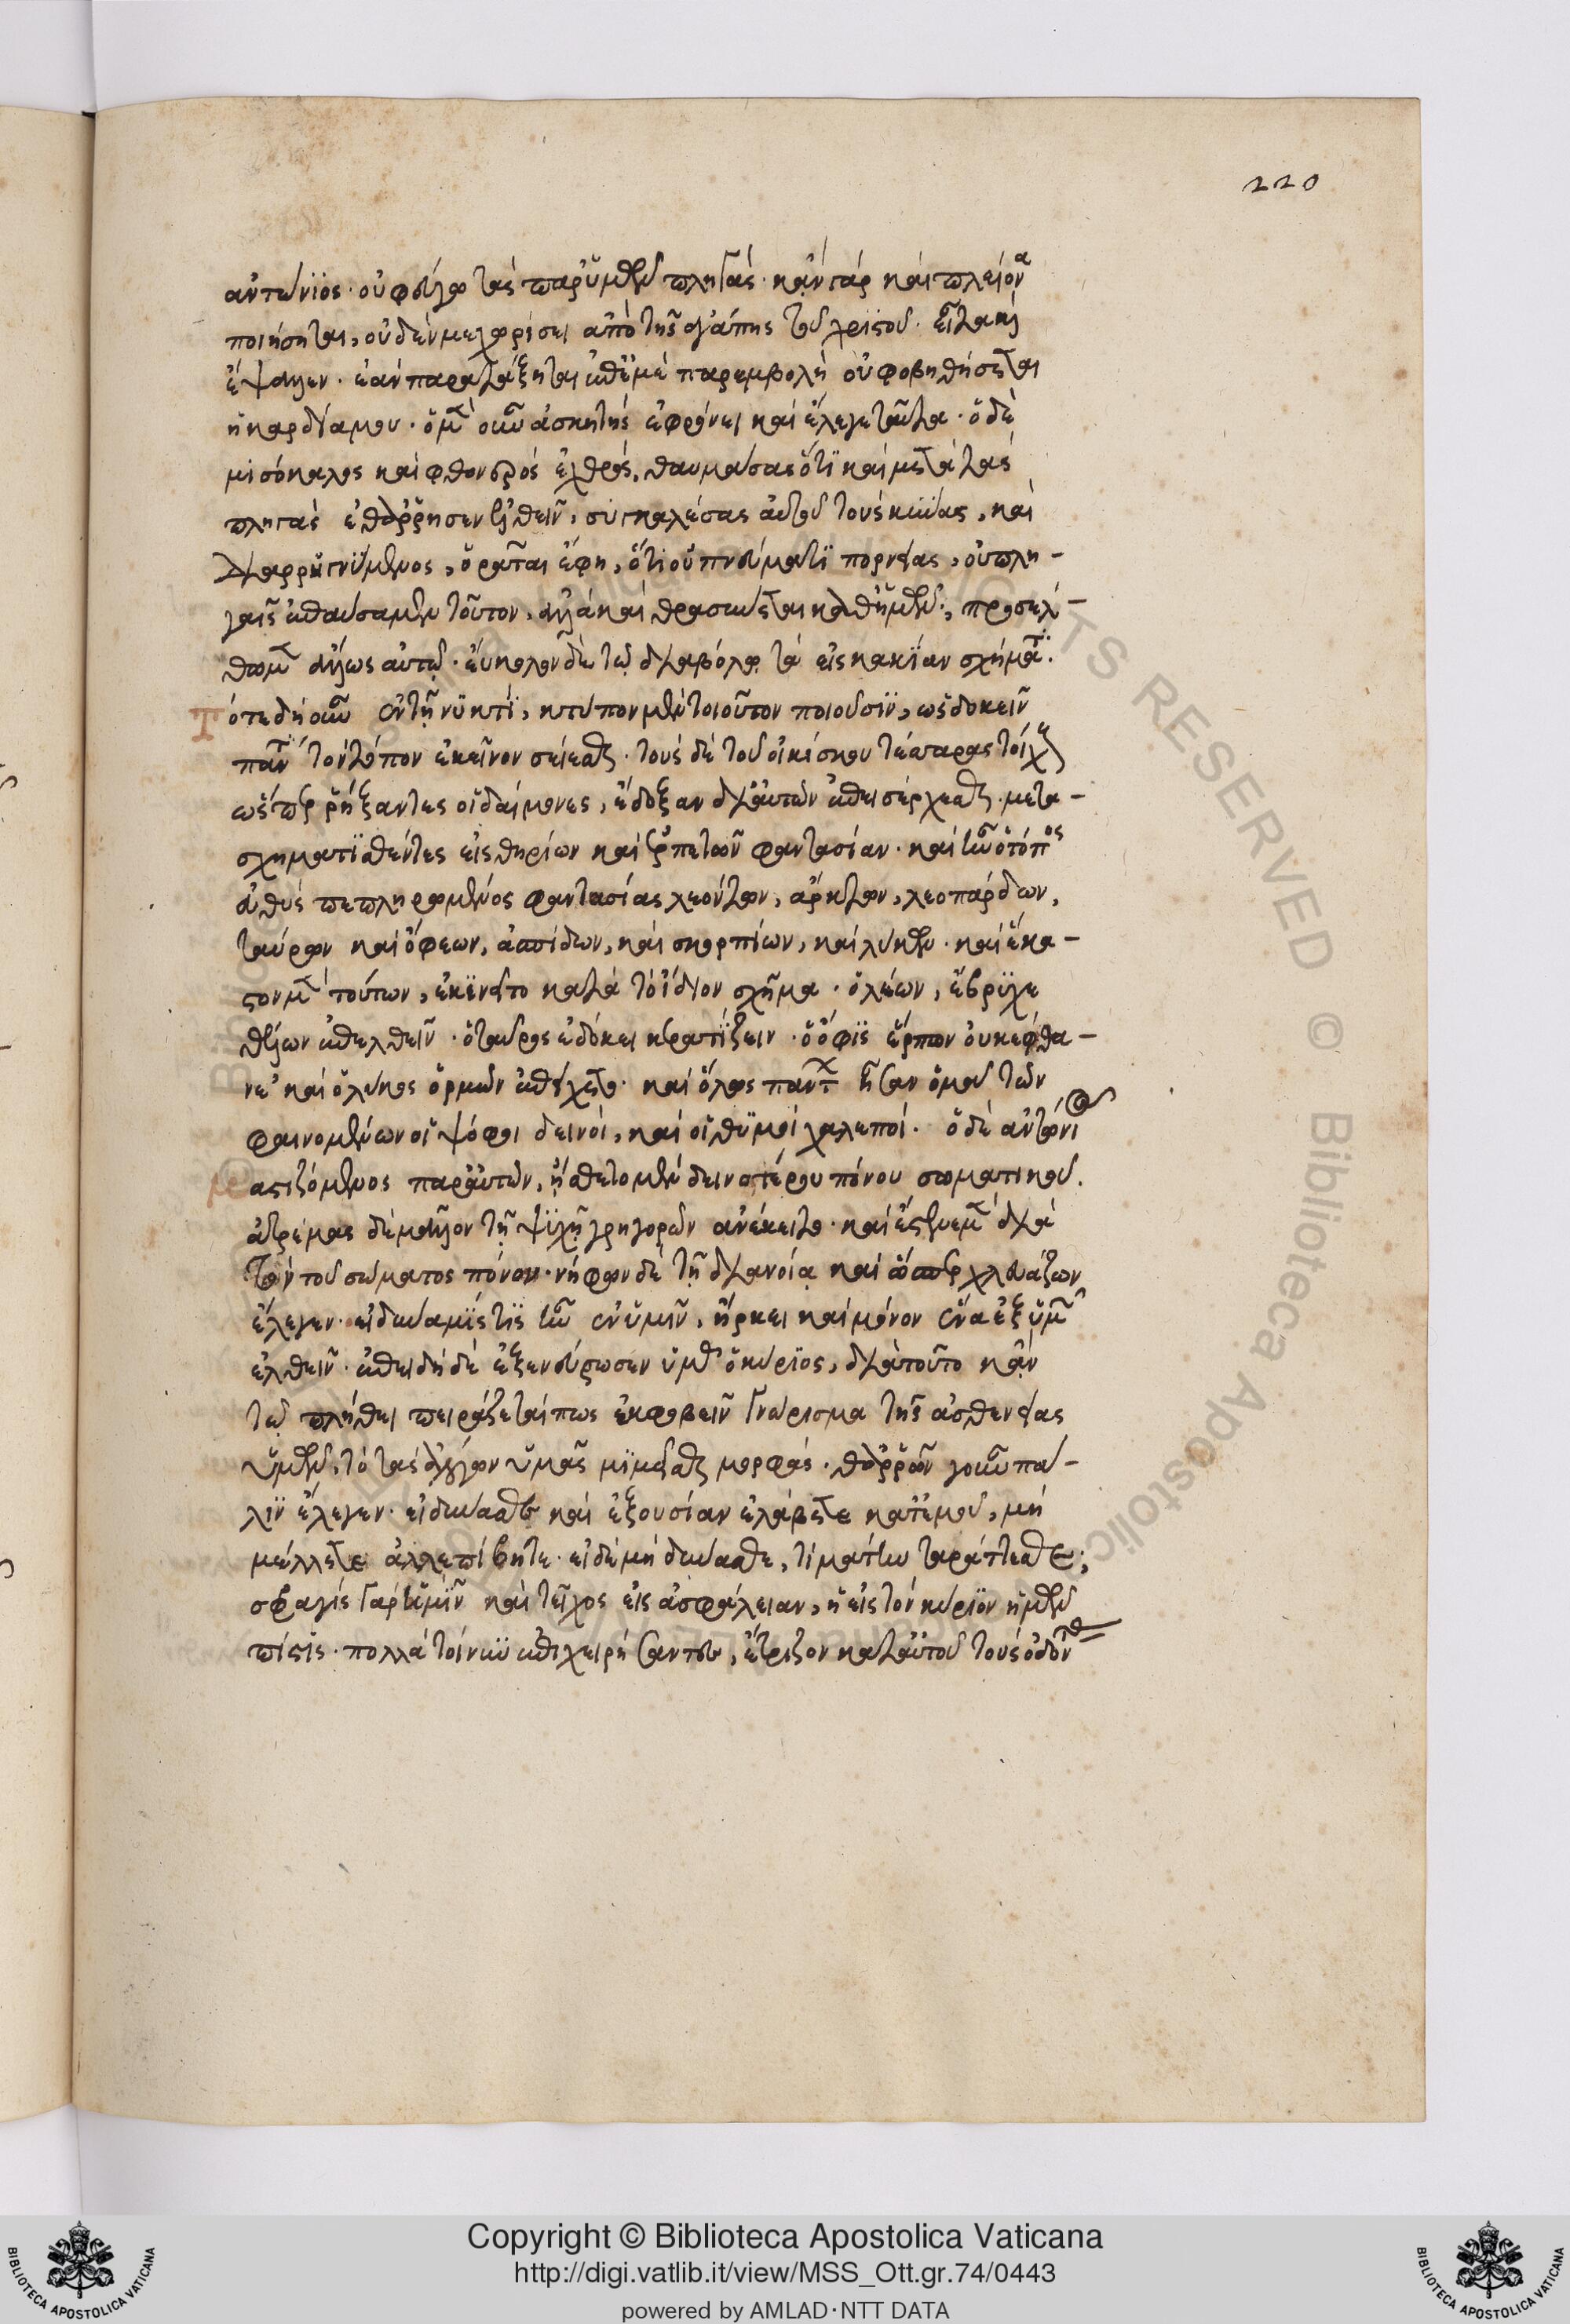 220
ἀντώνϊος· οὐ φεύγω τὰς παρ' ὑμῶν πληγάς· κἂν γὰρ καὶ πλείονα
ποιήσηται, οὐδέν με χωρίσει ἀπὸ τῆς ἀγάπης τοῦ χριστοῦ. εἶτα καὶ
ἔψαλλεν· ἐὰν παρατάξηται ἐπ' ἐμὲ παρεμβολὴ οὐ φοβηθήσεται
ἡ καρδία μου· ὁ μὲν οὖν ἀσκητὴς ἐφρόνει καὶ ἔλεγε ταῦτα· ὁ δὲ
μισόκαλος καὶ φθονερὸς ἐχθρός, θαυμάσας ὅτι καὶ μετὰ τὰς
πληγὰς ἐθάρρησεν ἐλθεῖν, συγκαλέσας αὐτοῦ τοὺς κύνας, καὶ
διαρρηγνύμενος, ὁρᾶτε ἔφη, ὅτι οὐ πνεύματι πορνείας, οὐ πλη-
γαῖς ἐπαύσαμεν τοῦτον, ἀλλὰ καὶ θρασύνεται καθ' ἡμῶν·, προσέλ-
θωμεν ἄλλως αὐτῷ· εὔκολον δὲ τῷ διαβόλῳ τὰ εἰς κακίαν σχήματα.
Τότε δὴ οὖν ἐν τῇ νυκτὶ, κτύπον μὲν τοιοῦτον ποιοῦσιν, ὡς δοκεῖν
πάντα τὸν τόπον ἐκεῖνον σείεσθαι· τοὺς δὲ τοῦ οἰκίσκου τέσσαρας τοίχους
ὥσπερ ῥήξαντες οἱ δαίμονες, ἔδοξαν δι' αὐτῶν ἐπεισέρχεσθαι· μετα-
σχηματισθέντες εἰς θηρίων καὶ ἑρπετῶν φαντασίαν· καὶ ἦν ὁ τόπος
εὐθὺς πεπληρωμένος φαντασίας λεόντων, ἄρκτων, λεοπάρδων,
ταύρων καὶ ὄφεων, ἀσπίδων, καὶ σκορπίων, καὶ λύκων· καὶ ἕκα-
στον μὲν τούτων, ἐκινεῖτο κατὰ τὸ ἴδιον σχῆμα· ὁ λέων, ἔβρυχε
θέλων ἐπελθεῖν· ὁ ταῦρος ἐδόκει κερατίζειν· ὁ ὄφις ἕρπων οὐκ ἔφθα-
νε· καὶ ὁ λύκος ὁρμῶν ἐπείχετο· καὶ ὅλως πάντων ἦσαν ὁμοῦ τῶν
φαινομένων οἱ ψόφοι δεινοί, καὶ οἱ θυμοὶ χαλεποί. ὁ δὲ ἀντώνιος
μαστιζόμενος παρ' αὐτῶν, ᾔσθετο μὲν δεινοτέρου πόνου σωματικοῦ.
ἀτρέμας δὲ μᾶλλον τῇ ψυχῇ γρηγορῶν ἀνέκειτο· καὶ ἔστενε μὲν διὰ
τὸν τοῦ σώματος πόνον· νήφων δὲ τῇ διανοίᾳ καὶ ὥσπερ χλευάζων
ἔλεγεν· εἰ δύναμίς τις ἦν ἐν ὑμῖν, ἤρκει καὶ μόνον ἕνα ἐξ ὑμῶν
ἐλθεῖν· ἐπειδὴ δὲ ἐξενεύρωσεν ὑμᾶς ὁ κύριος, διὰ τοῦτο κἂν
τῷ πλήθει πειράζεταί πως ἐκφοβεῖν γνώρισμα τῆς ἀσθενείας
ὑμῶν, τὸ τὰς ἀλόγων ὑμᾶς μιμεῖσθαι μορφάς· θαρρῶν γοῦν πά-
λιν ἔλεγεν· εἰ δύνασθε καὶ ἐξουσίαν ἐλάβετε κατ' ἐμοῦ, μὴ
μέλλετε ἀλλ' ἐπίβητε· εἰ δὲ μὴ δύνασθε, τί μάτην ταράττεσθε;
σφραγὶς γὰρ ἡμῖν καὶ τεῖχος εἰς ἀσφάλειαν, ἡ εἰς τὸν κύριον ἡμῶν
πίστις· πολλὰ τοίνυν ἐπιχειρήσαντες, ἔτριζον κατ' αὐτοῦ τοὺς ὀδόντας
Copyright © Biblioteca Apostolica Vaticana
http://digi.vatlib.it/view/MSS_Ott.gr.74/0443
powered by AMLAD·NTT DATA
BIBLIOTECA APOSTOLICA VATICANA
BIBLIOTECA APOSTOLICA VATICANA